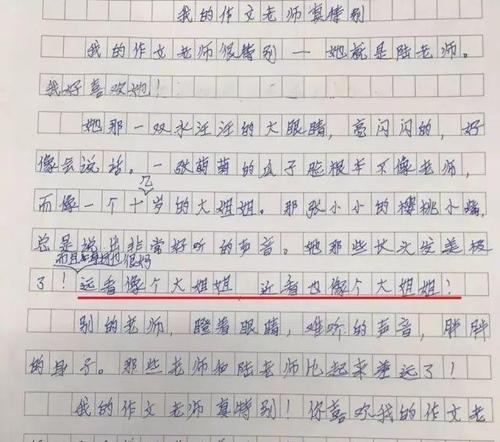 我的作文老师真特别
我的作文老师很特别——她就是陆老师。
我好喜欢她！
她那一双水汪汪的大眼睛，亮闪闪的，好
像会说话。一张萌萌的瓜子脸根本不像老师，
而像一个十几岁的大姐姐。那张小小的樱桃小嘴，
总是说出非常好听的声音。她那些长头发美极
而且身材也很好
了！远看像个大姐姐，近看也像个大姐姐！
别的老师，瞪着眼睛，难听的声音，胖胖
的身子。那些老师和陆老师比起来差远了！
我的作文老师真特别！你喜欢我的作文老